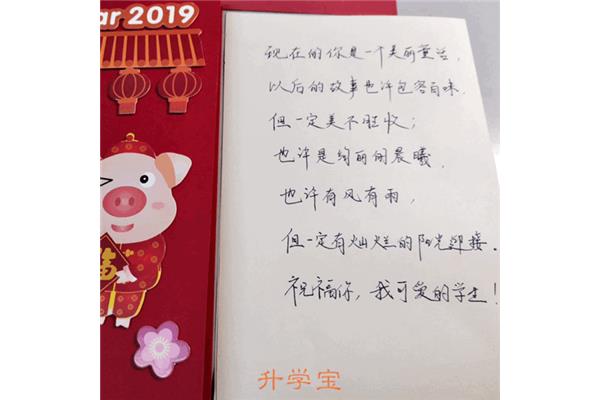 ar 2019
福
现在的你是一个美丽童话，
以后的故事也许包容百味，
但一定美不胜收；
也许是绚丽的晨曦，
也许有风有雨，
但一定有灿烂的阳光迎接。
祝福你，我可爱的学生！
升学宝